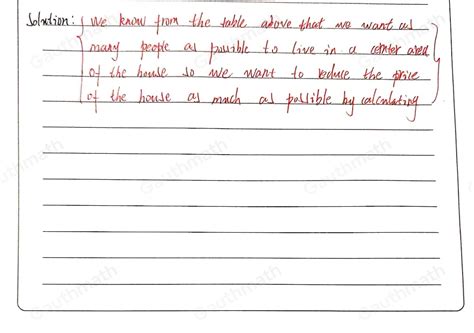 Solution: { We know from the table above that we want as
many people as possible to live in a center area
of the house so we want to reduce the price
of the house as much as possible by calculating }
Gauthmath
Gauthmath
Gauthmath
Gauthmath
Gauthmath
Gauthmath